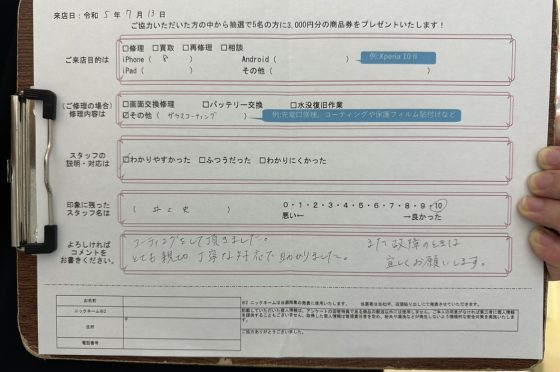 来店日：令和 5年 7月 13日
ご協力いただいた方の中から抽選で5名の方に3,000円分の商品券をプレゼントいたします！
ご来店目的は
□修理 □買取 □再修理 □相談
iPhone（ 8 ） Android（ ） 例:Xperia 10 II
iPad（ ） その他（ ）
（ご修理の場合）
修理内容は
□画面交換修理 □バッテリー交換 □水没復旧作業
☑その他（ ガラスコーティング ） 例:充電口修理、コーティングや保護フィルム貼付けなど
スタッフの
説明・対応は
☑わかりやすかった □ふつうだった □わかりにくかった
印象に残った
スタッフ名は
（ 井上史 ）
0・1・2・3・4・5・6・7・8・9・10
悪い← →良かった
よろしければ
コメントを
お書きください。
コーティングをして頂きました。
とても親切 丁寧な対応で助かりました。
また故障の時は
宜しくお願いします。
お名前
ニックネーム※2
住所
〒
電話番号
※2 ニックネームは当選発表の発表に使用いたします。 当選者は当社HP、店頭貼り出しにて発表させていただきます。
ご協力ありがとうございました。